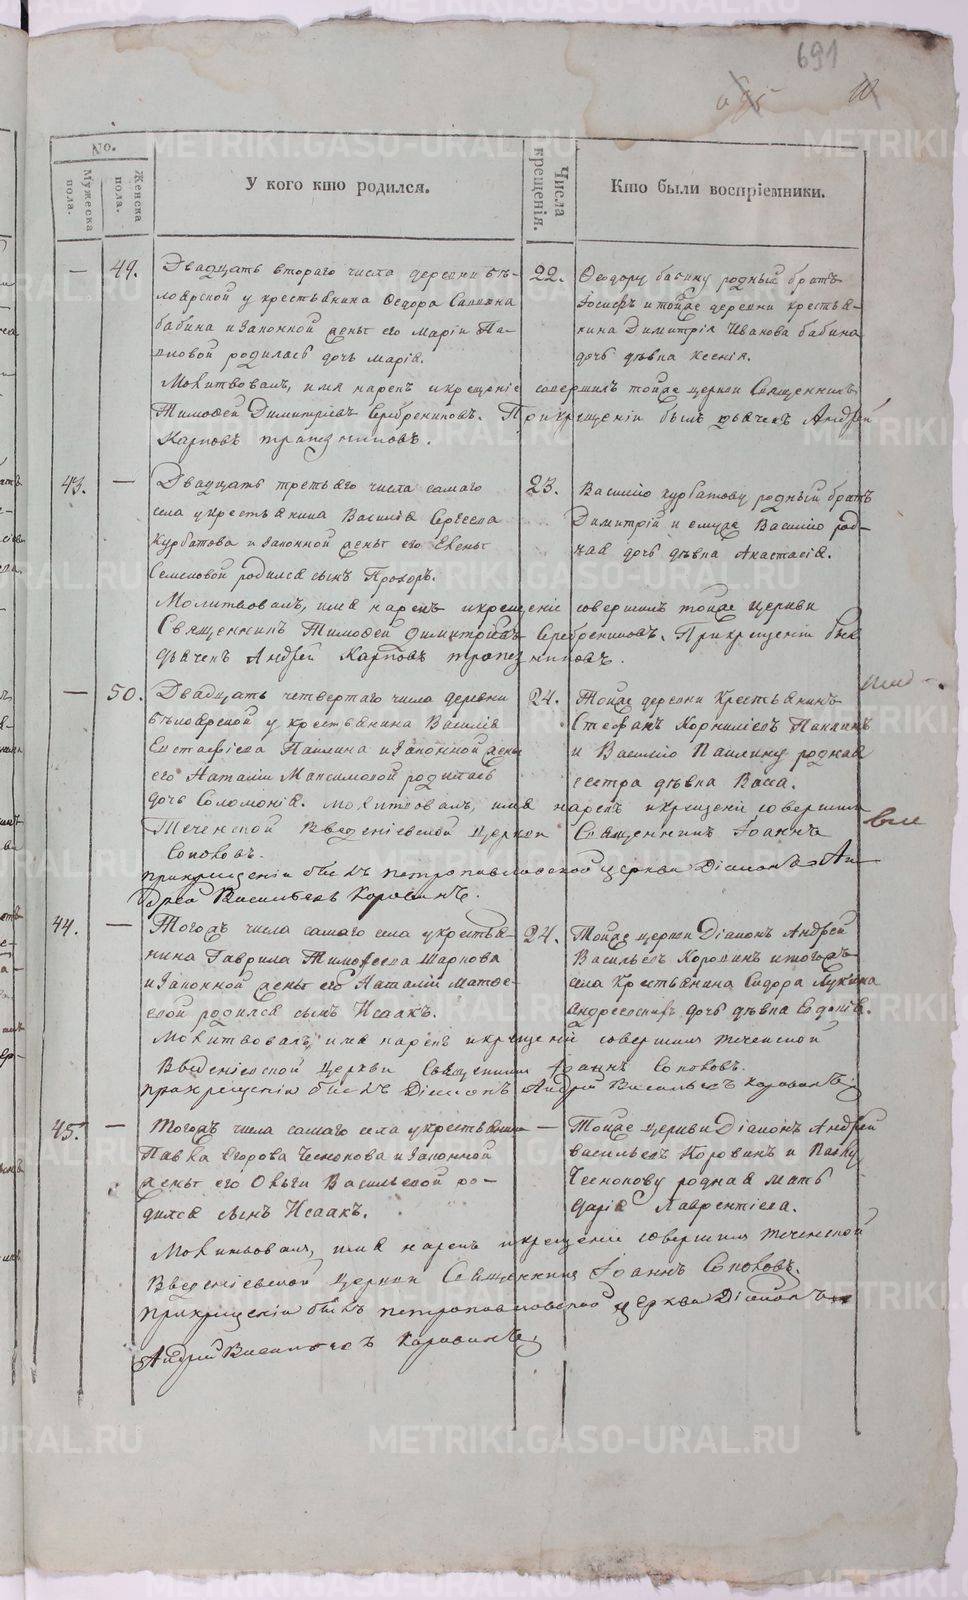 691
No.
Мужеска пола.
Женска пола.
У кого кто родился.
Числа крещенія.
Кто были воспріемники.
— 49. Двадцать втораго числа деревни Бѣ-
лоярской у крестьянина Ѳедора
бабина и законной жены его Маріи Па-
вловой родилась дочь Марія.
22. Ѳеодору бабину родный братъ
Іосифъ и тойже деревни крестья-
нина Димитрія Иванова бабина
дочь дѣвка Ксенія.
Молитвовалъ, имя нарекъ и крещеніе совершилъ тойже церкви Священникъ
Тимофей Димитріевъ Серебрениковъ. При крещеніи былъ дьячекъ Андрей
Карповъ трапезниковъ.
43. — Двадцать третьяго числа самаго
села у крестьянина Василія Сергеева
Курбатова и законной жены его Елены
Семеновой родился сынъ Прохоръ.
23. Василію курбатову родный братъ
Димитрій и емуже Василію род-
ная дочь дѣвка Анастасія.
Молитвовалъ, имя нарекъ и крещеніе совершилъ тойже церкви
Священникъ Тимофей Димитріевъ Серебрениковъ. При крещеніи былъ
дьячекъ Андрей Карповъ трапезниковъ.
— 50. Двадцать четвертаго числа деревни
Бѣлоярской у крестьянина Василія
Евстафіева Паклина и законной жены
его Наталіи Максимовой родилась
дочь Соломонія. Молитвовалъ, имя нарекъ и крещеніе совершилъ
24. Тойже деревни Крестьянинъ
Стефанъ Корниліевъ Паклинъ
и Василію Паклину родная
сестра дѣвка Васса.
Теченской Введеніевской церкви Священникъ Іоаннъ
Соповъ.
при крещеніи былъ петропавловской церкви Діаконъ Ан
дрей Васильевъ Коровинъ.
44. — Тогожъ числа самаго села у крестья-
нина Гаврила Тимофеева Шарпова
и законной жены его Наталіи Матфе-
евой родился сынъ Исаакъ.
24. Тойже церкви Діаконъ Андрей
Васильевъ Коровинъ и тогожъ
села Крестьянина Сидора Лукина
дочь дѣвка Евдокія.
Молитвовалъ, имя нарекъ и крещеніе совершилъ теченской
Введеніевской церкви Священникъ Іоаннъ Соповъ.
при крещеніи былъ Діаконъ Андрей Васильевъ Коровинъ
45. — Тогожъ числа самаго села у крестьянина —
Павла Егорова Чеснокова и законной
жены его Ольги Васильевой ро-
дился сынъ Исаакъ.
Тойже церкви Діаконъ Андрей
Васильевъ Коровинъ и Павлу
Чеснокову родная мать
Дарія Лаврентіева.
Молитвовалъ, имя нарекъ и крещеніе совершилъ теченской
Введеніевской церкви Священникъ Іоаннъ Соповъ.
при крещеніи былъ петропавловской церкви Діаконъ
Андрей Васильевъ Коровинъ
METRIKI.GASO-URAL.RU